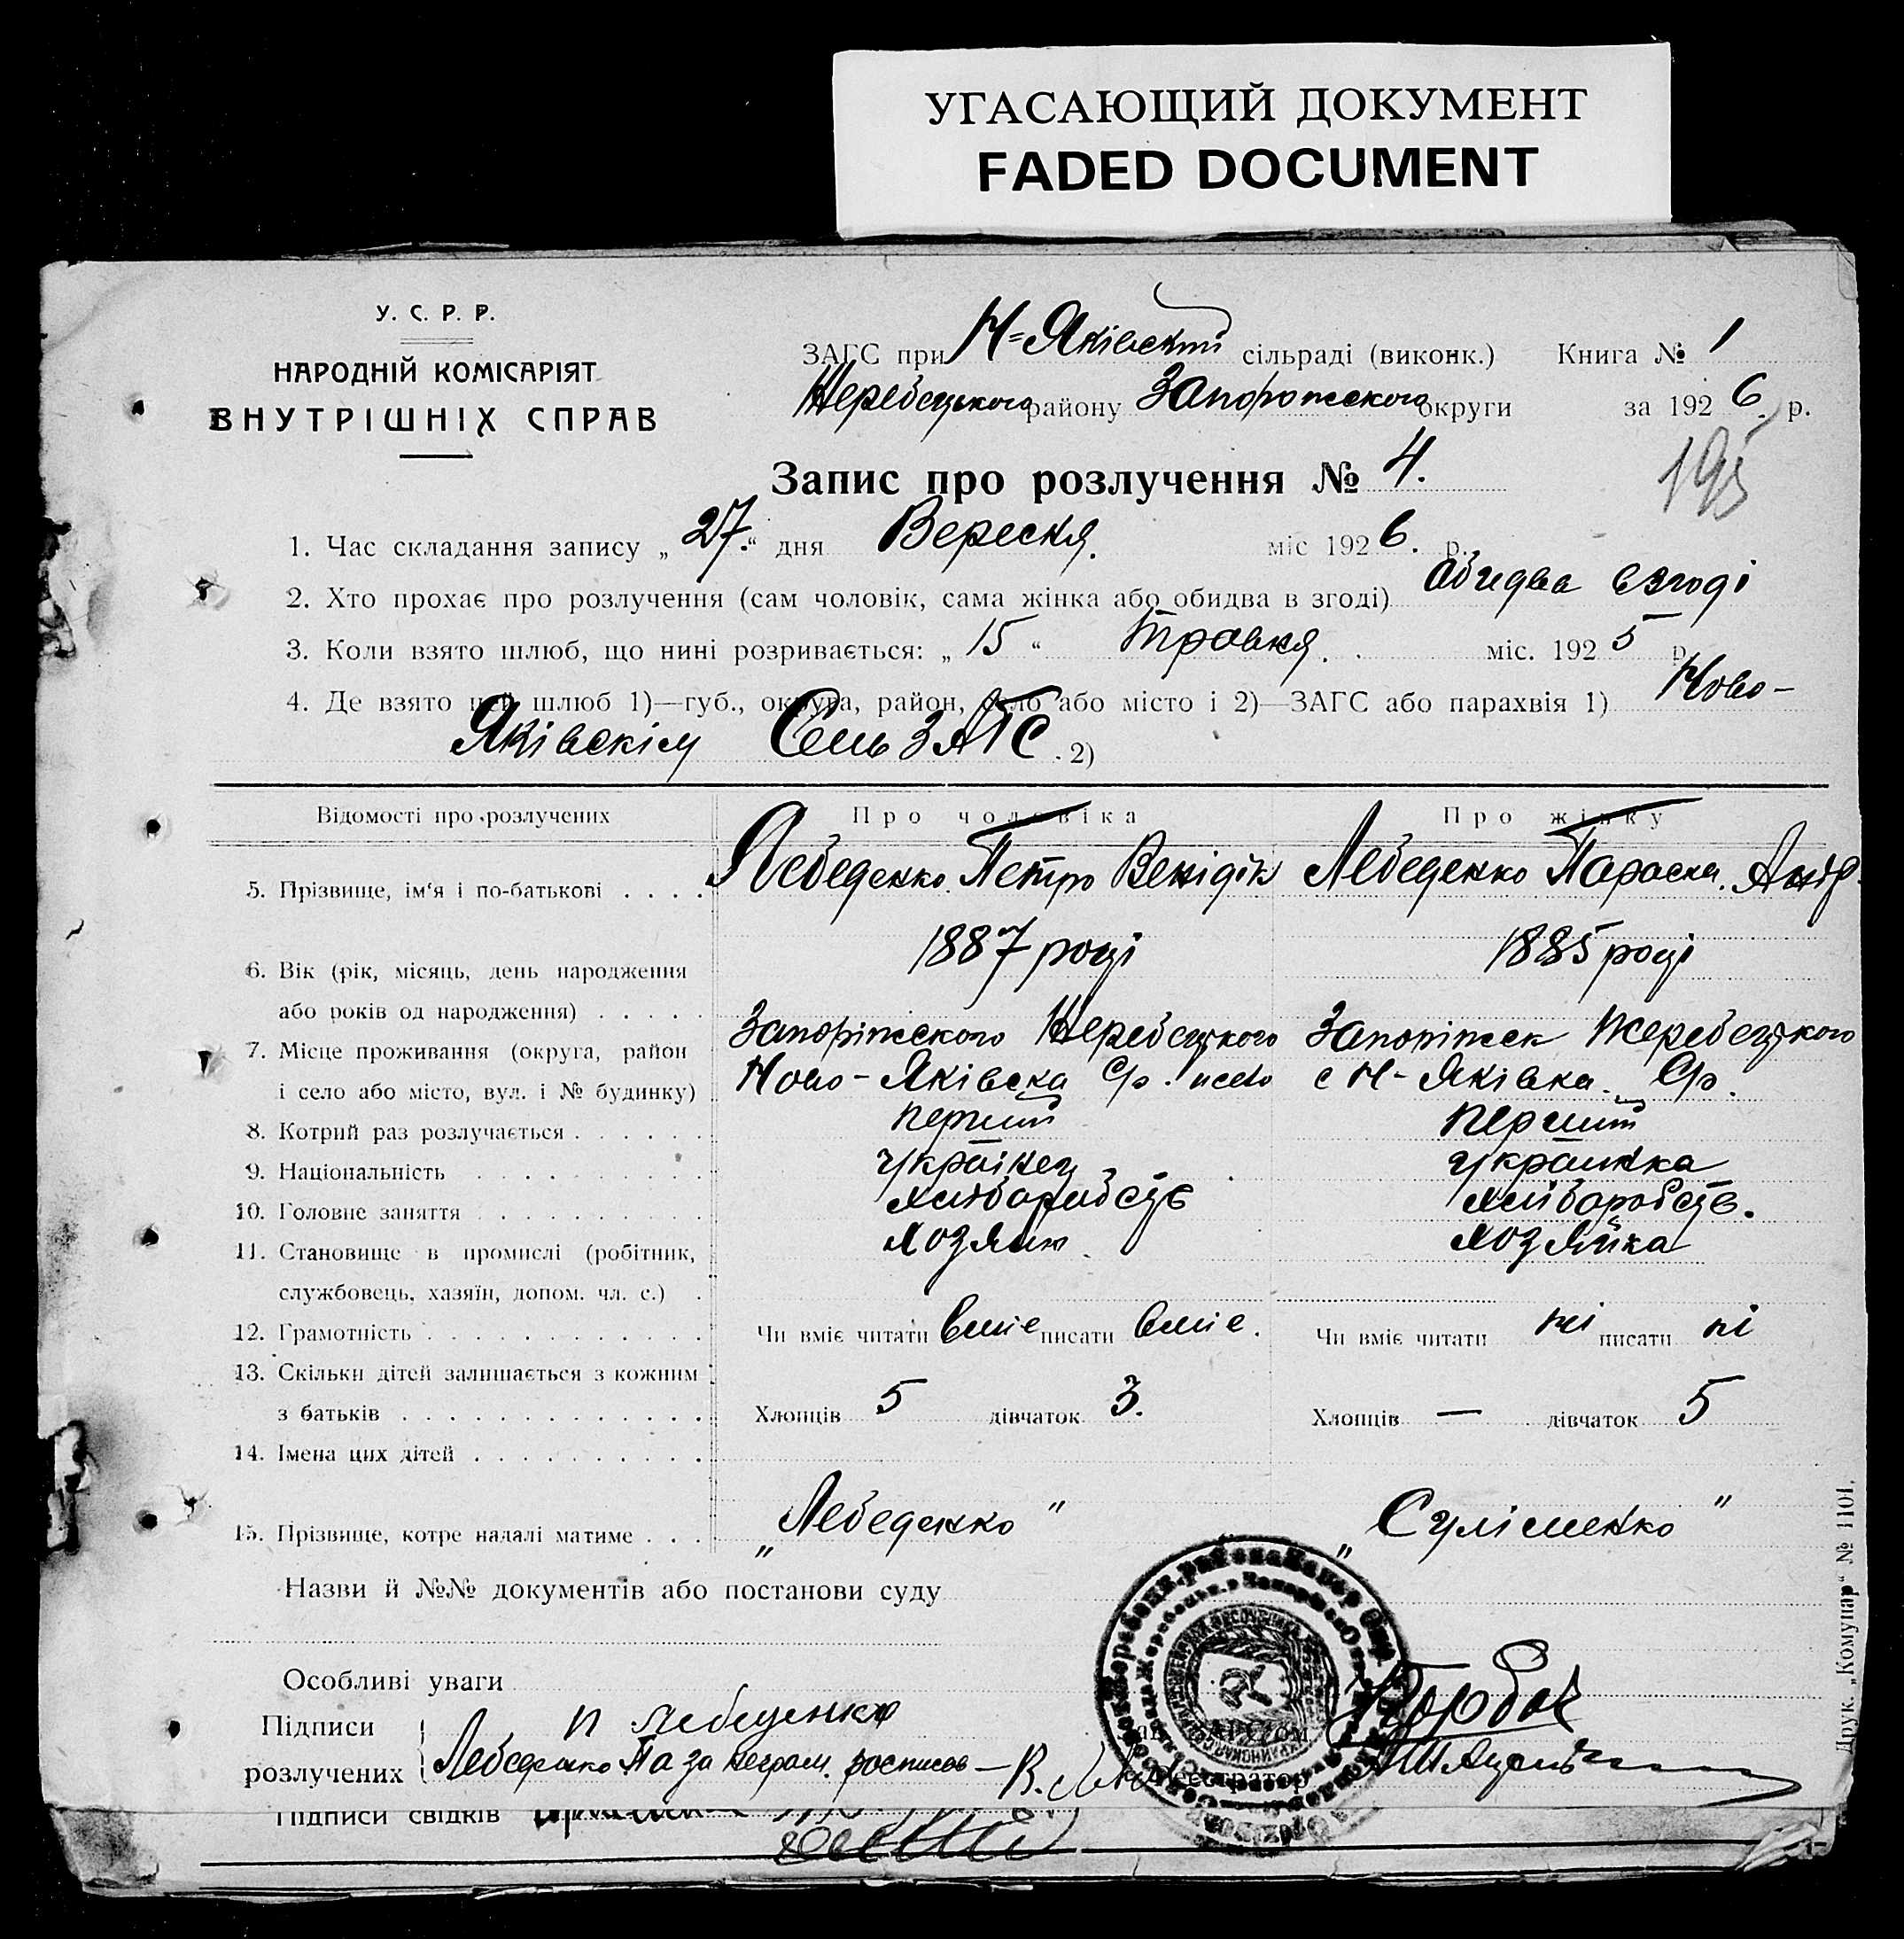 УГАСАЮЩИЙ ДОКУМЕНТ
FADED DOCUMENT
У. С. Р. Р.
НАРОДНІЙ КОМІСАРІЯТ
ВНУТРІШНІХ СПРАВ
ЗАГС при Н=Яківскій сільраді (виконк.) Книга № 1
Жеребецького району Запорожского округи за 1926. р.
Запис про розлучення № 4.
195
1. Час складання запису „27.“ дня Вересня. міс 1926. р.
2. Хто прохає про розлучення (сам чоловік, сама жінка або обидва в згоді) Обидва взгоді
3. Коли взято шлюб, що нині розривається: „15“ Травня. міс. 1925 р.
4. Де взято цей шлюб 1)—губ., округа, район, село або місто і 2)—ЗАГС або парахвія 1) Ново-
Яківскім Сель ЗАГС. 2)
Відомості про розлучених Про чоловіка Про жінку
5. Прізвище, ім'я і по-батькові . . . . Лебеденко Петро Венідік Лебеденко Параска. Андр
6. Вік (рік, місяць, день народження 1887 році 1885 році
або років од народження) . . . . .
7. Місце проживання (округа, район Запоріжского Жеребецького Запоріжск Жеребецького
і село або місто, вул. і № будинку) Ново-Яківска С/р. с Н-Яківка. С/р.
8. Котрий раз розлучається . . . . . . перший перший
9. Національність . . . . . . . . . . українец українка
10. Головне заняття . . . . . . . . . . хліборобств хліборобств.
11. Становище в промислі (робітник, хозяін хозяйка
службовець, хазяїн, допом. чл. с.) .
12. Грамотність . . . . . . . . . . . . Чи вміє читати вміє писати вміє. Чи вміє читати ні писати ні
13. Скільки дітей залишається з кожним
з батьків . . . . . . . . . . . . . Хлопців 5 дівчаток 3. Хлопців — дівчаток 5
14. Імена цих дітей . . . . . . . . . .
15. Прізвище, котре надалі матиме . . . „Лебеденко“ „Суліменко“
Назви й №№ документів або постанови суду
Особливі уваги
Підписи П Лебеденко
розлучених Лебеденко Па за неграм. росписов — В. Реєстратор
Підписи свідків
Друк. „Комунар“ № 1101.